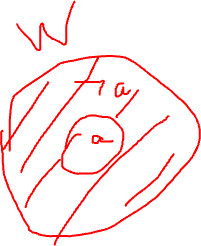 W
¬a
a